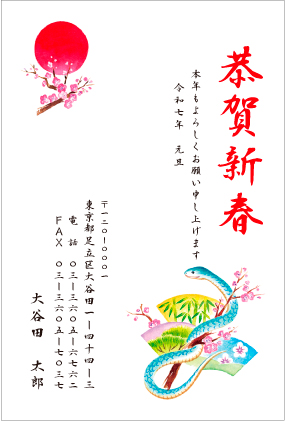 恭賀新春
本年もよろしくお願い申し上げます
令和七年　元旦
〒一二〇-〇〇〇一
東京都足立区大谷田一ー四十四ー三
電　話　〇三ー三六〇五ー六七六二
ＦＡＸ　〇三ー三六〇五ー七〇三七
大谷田　太郎